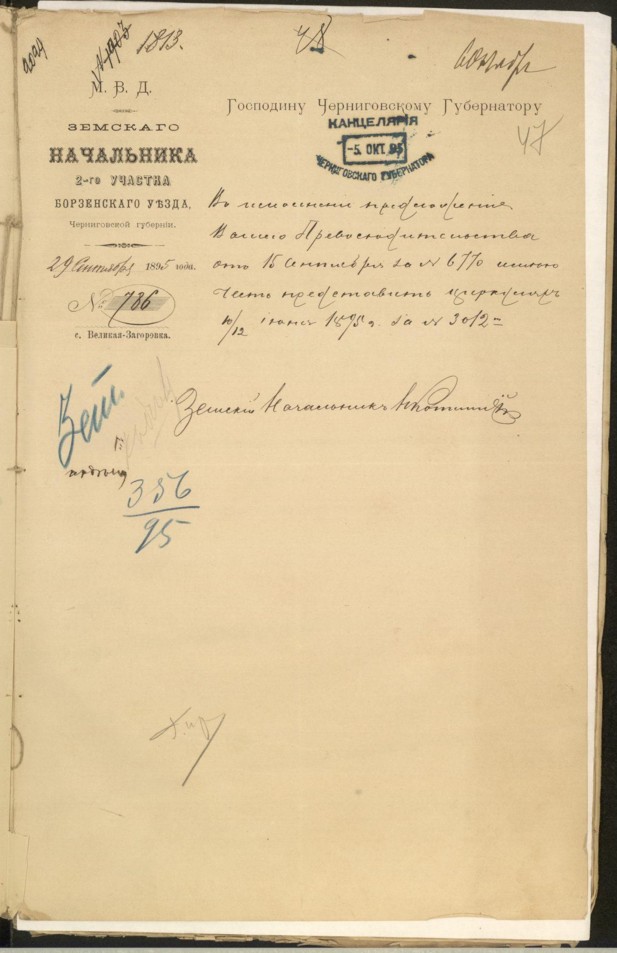 1813.
6 октября
М. В. Д.
ЗЕМСКАГО
НАЧАЛЬНИКА
2-го УЧАСТКА
БОРЗЕНСКАГО УѢЗДА,
Черниговской губерніи.
29 Сентября 1895 года.
№ 786
с. Великая-Загоровка.
Господину Черниговскому Губернатору
47
КАНЦЕЛЯРІЯ
-5. ОКТ. 95
ЧЕРНИГОВСКАГО ГУБЕРНАТОРА
Во исполненіе предложенія
Вашего Превосходительства
отъ 15 Сентября за № 6770 имѣю
честь представить циркуляръ
10/12 іюня 1895 г. за № 3012
Земскій Начальникъ
356
95